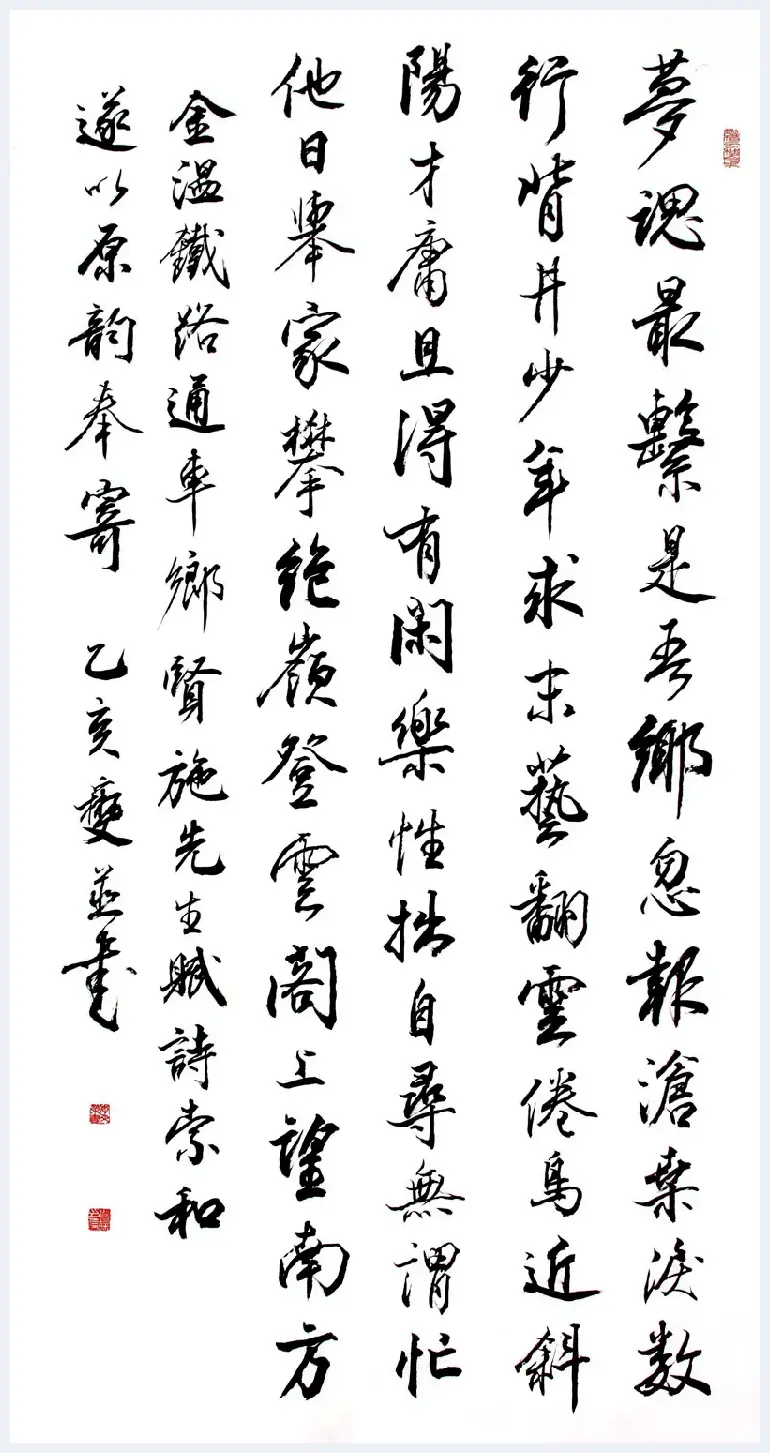 夢魂最繫是吾鄉忽報滄桑淚數
行背井少年求末藝翻雲倦鳥近斜
陽才庸且得有閑樂性拙自尋無謂忙
他日舉家攀絶嶺登雲閣上望南方
金溫鐵路通車鄉賢施先生賦詩索和
遂以原韵奉寄 乙亥夔並書